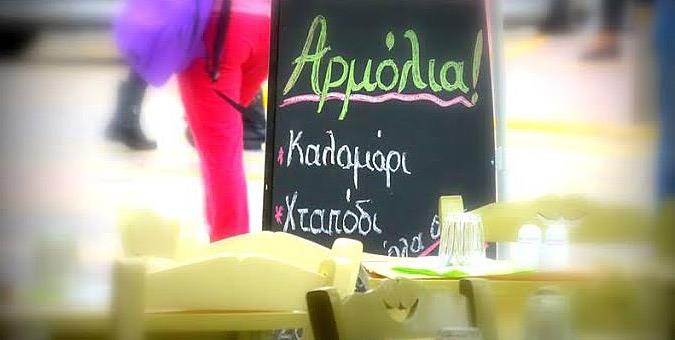 Αρμόλια!
*Καλαμάρι
*Χταπόδι
όλα